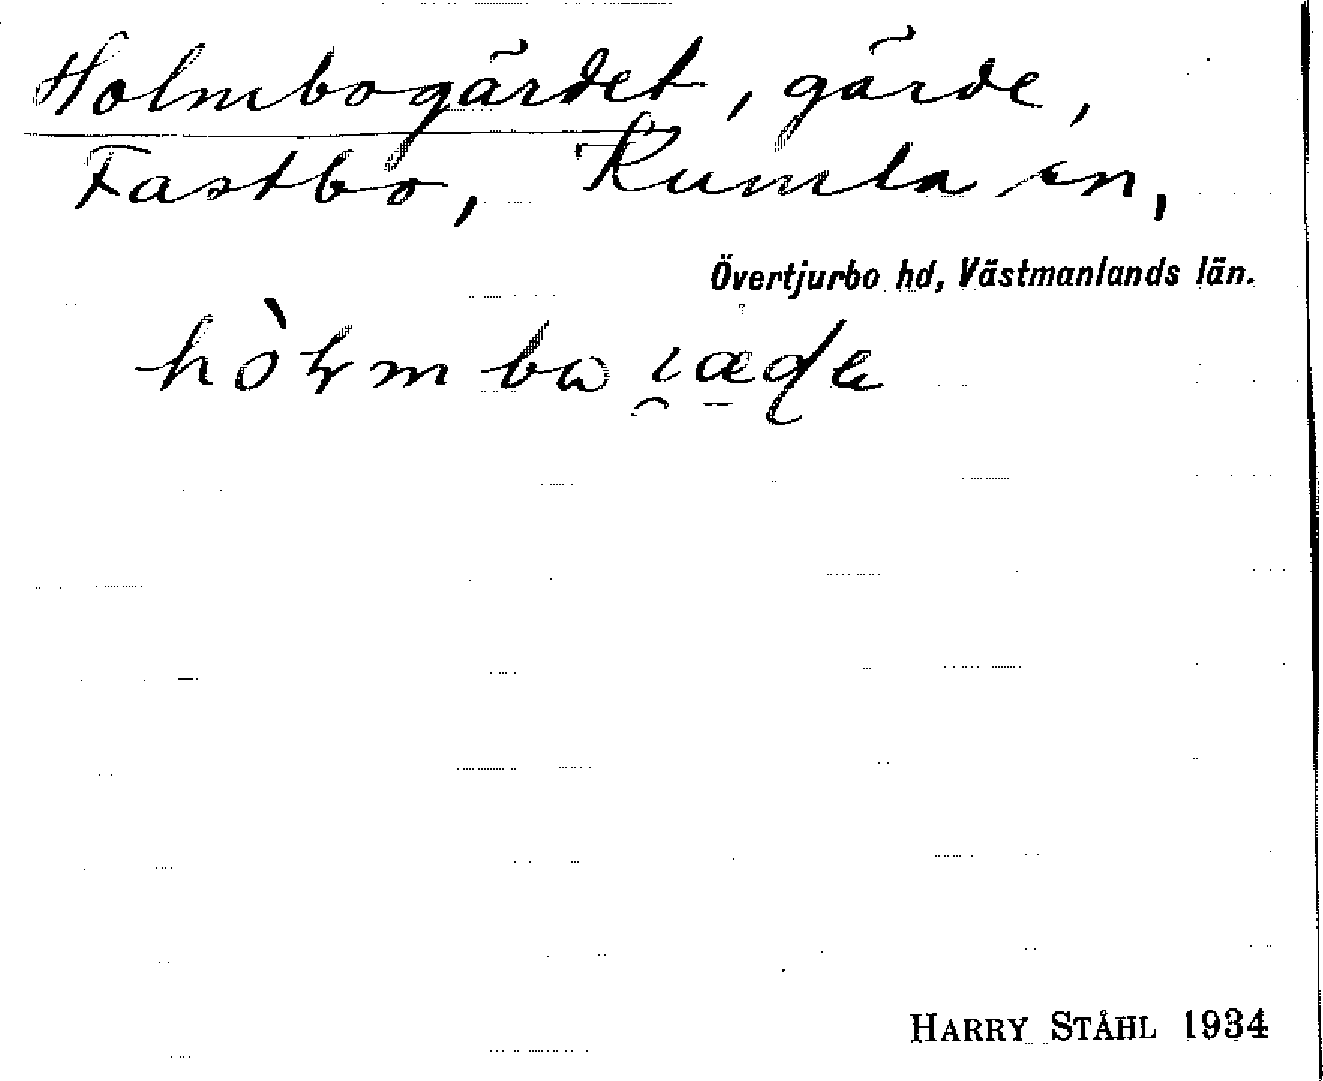 Holmbogärdet, gärde,
Fastbo, Kumla sn,
Övertjurbo hd, Västmanlands län.
HARRY STÅHL 1934